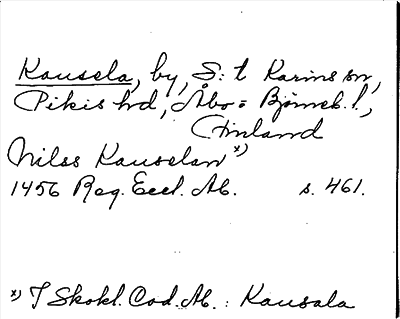 Kausela, by, S:t Karins sn,
Pikis hd, Åbo = Björneb. l.,
Finland
Nilss Kauselan *)
1456 Reg. Eccl. Ab. s. 461.
*) I Skokl. Cod. Ab. : Kausala